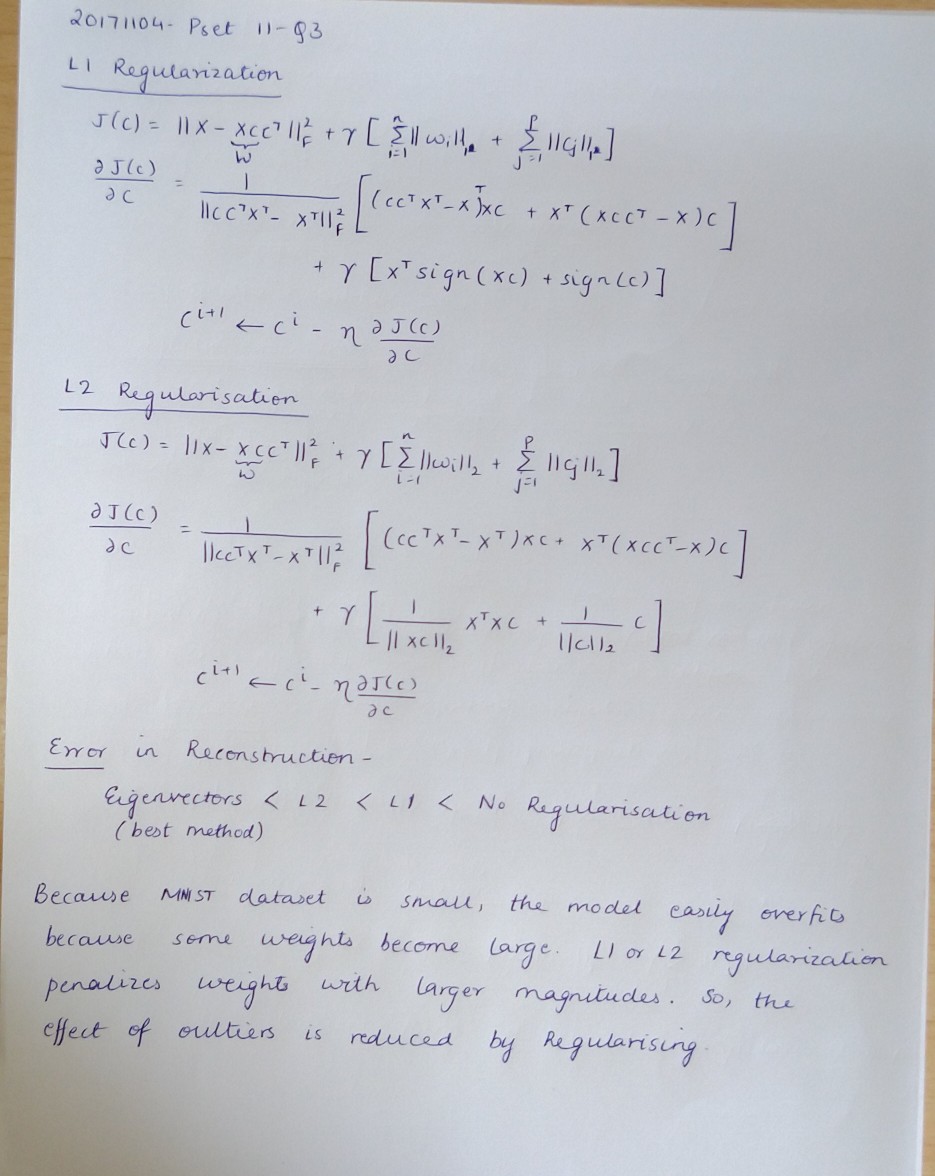 20171104- Pset 11-Q3
L1 Regularization
J(C) = ||X - XCC^T||_F^2 + γ [ Σ_{i=1}^{n} ||w_i||_1 + Σ_{j=1}^{p} ||C_j||_1 ]
W
∂J(C)/∂C = 1/||CC^TX^T - X^T||_F^2 [ (CC^TX^T - X)^T XC + X^T (XCC^T - X)C ]
+ γ [X^T sign(XC) + sign(C)]
C^{i+1} ← C^i - η ∂J(C)/∂C
L2 Regularisation
J(C) = ||X - XCC^T||_F^2 + γ [ Σ_{i=1}^{n} ||w_i||_2 + Σ_{j=1}^{p} ||C_j||_2 ]
W
∂J(C)/∂C = 1/||CC^TX^T - X^T||_F^2 [ (CC^TX^T - X^T)XC + X^T(XCC^T - X)C ]
+ γ [ 1/||XC||_2 X^TXC + 1/||C||_2 C ]
C^{i+1} ← C^i - η ∂J(C)/∂C
Error in Reconstruction -
Eigenvectors < L2 < L1 < No Regularisation
(best method)
Because MNIST dataset is small, the model easily overfits
because some weights become large. L1 or L2 regularization
penalizes weights with larger magnitudes. So, the
effect of oultiers is reduced by Regularising.